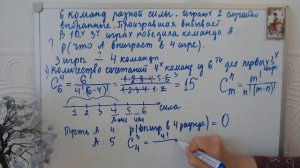 6 команд разной силы. Играют 2 случайно
выбранные. Проигравшая выбывает
В 1ой 3х играх победила команда А.
? P(что А выиграет в 4 игре).
3 игре — 4 команды
1) количество сочетаний 4х команд у 6ти для первых 3х игр
C₆⁴ = 6! / 4!(6-4)! = 1·2·3·4·5·6 / 1·2·3·4·1·2 = 15
Cₘⁿ = m! / n!(m-n)!
1 2 3 4 5 6 → сила
Пусть А: 4 p(выигр в 4 раунде) = 0
А: 5 C₄³ = 4!